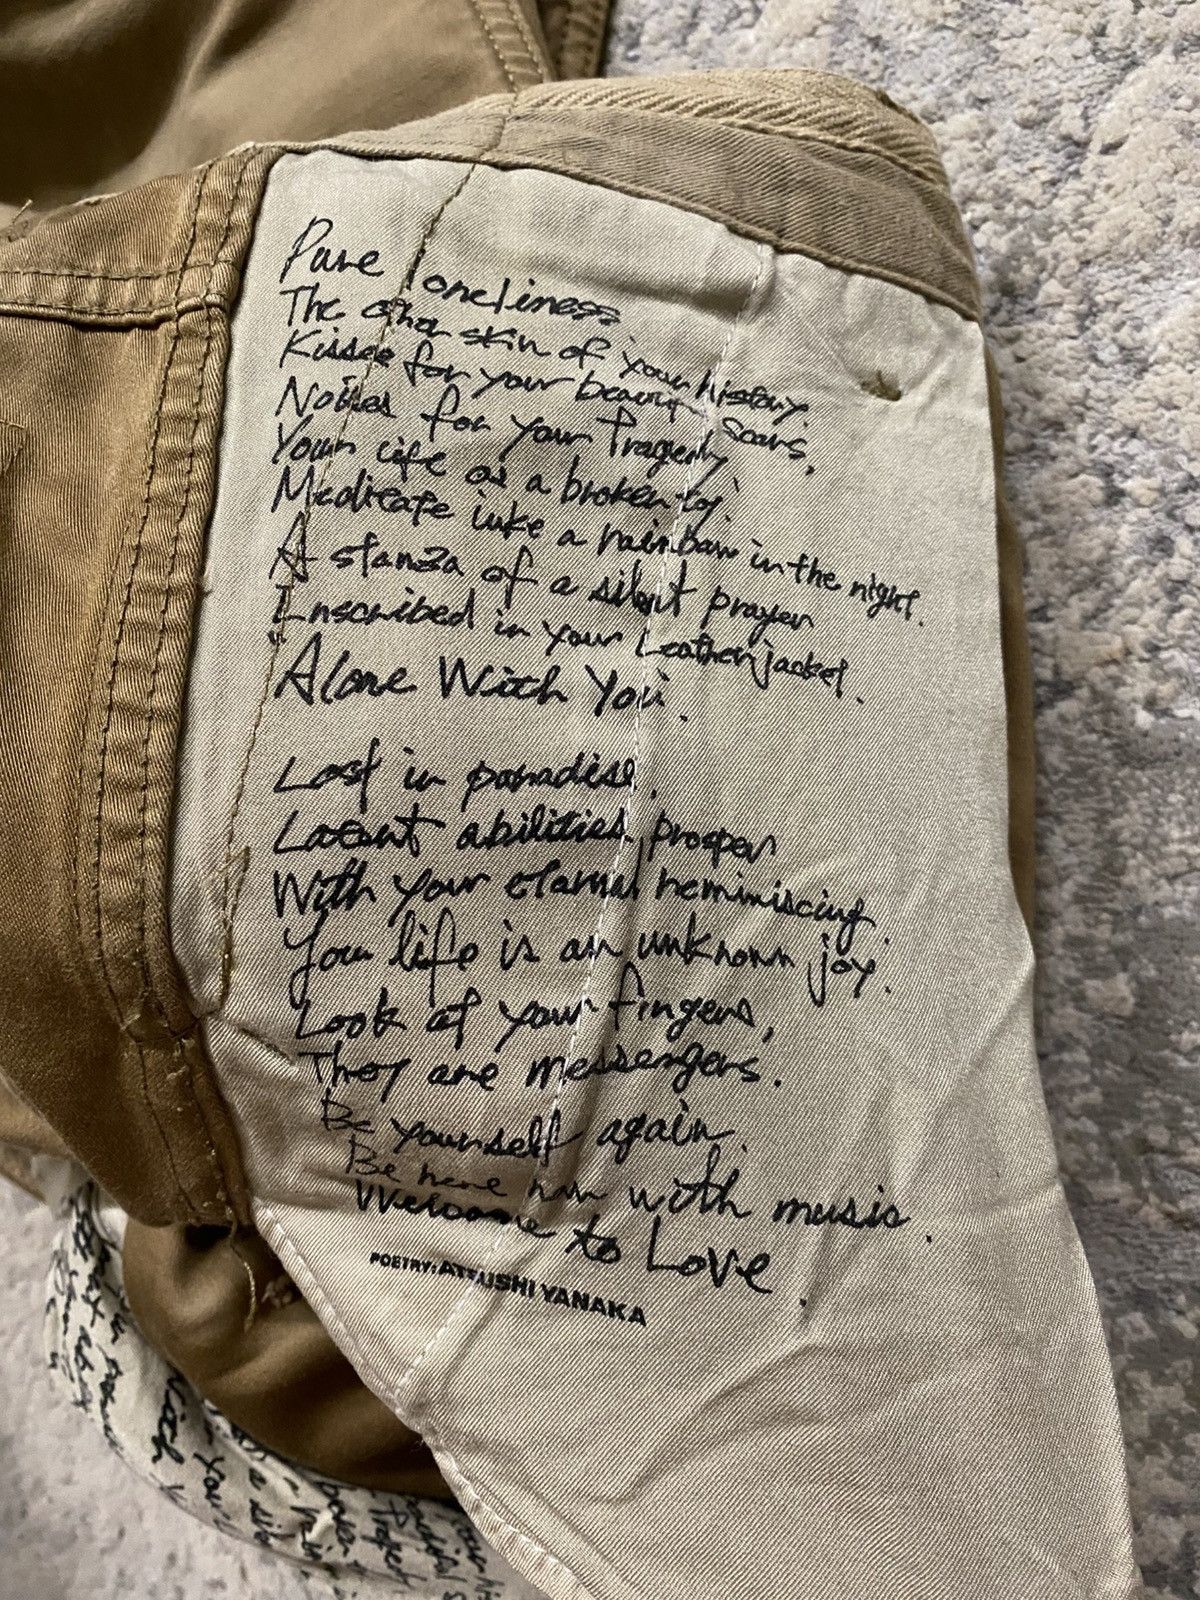 Pure loneliness
The other skin of your history
Kisses for your beauty scars,
Noises for your Tragedy.
Your life as a broken toy.
Medicate like a rainbow in the night.
A stanza of a silent prayer
Inscribed in your Leather jacket.
"Alone With You.
Lost in paradise,
Latent abilities prosper
With your eternal reminiscing.
Your life is an unknown joy.
Look at your fingers,
They are messengers.
Be yourself again.
Be here now with music.
Welcome to Love.
POETRY: ATSUSHI YANAKA